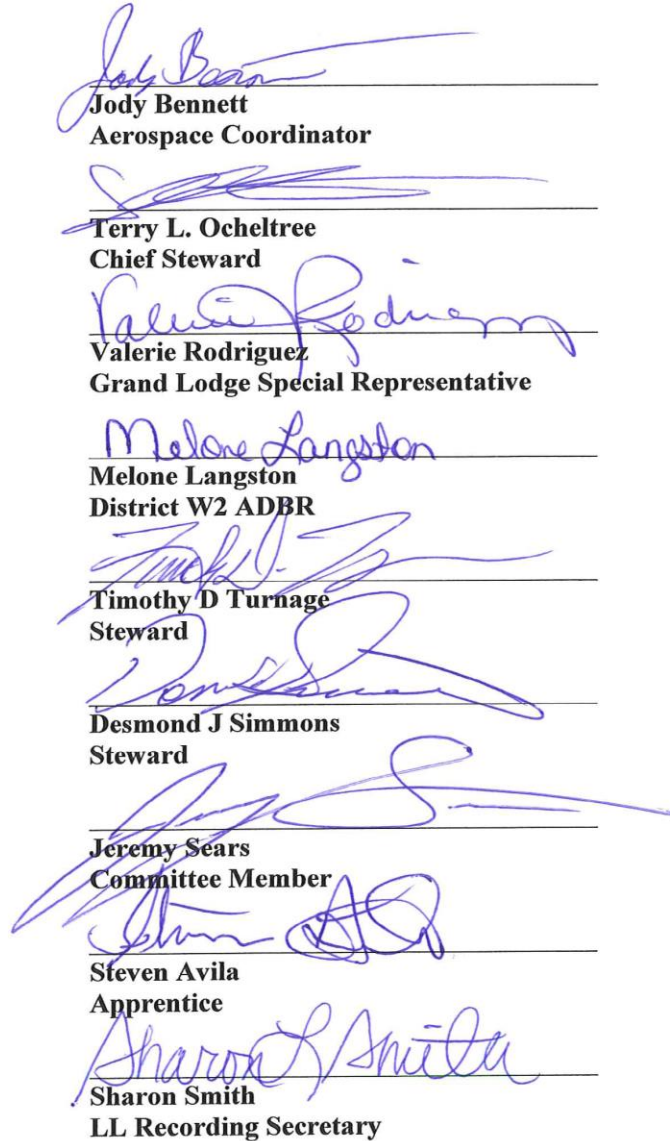 Jody Bennett
Aerospace Coordinator
Terry L. Ocheltree
Chief Steward
Valerie Rodriguez
Valerie Rodriguez
Grand Lodge Special Representative
Melone Langston
Melone Langston
District W2 ADBR
Timothy D Turnage
Steward
Desmond J Simmons
Steward
Jeremy Sears
Committee Member
Steven Avila
Apprentice
Sharon L Smith
Sharon Smith
LL Recording Secretary